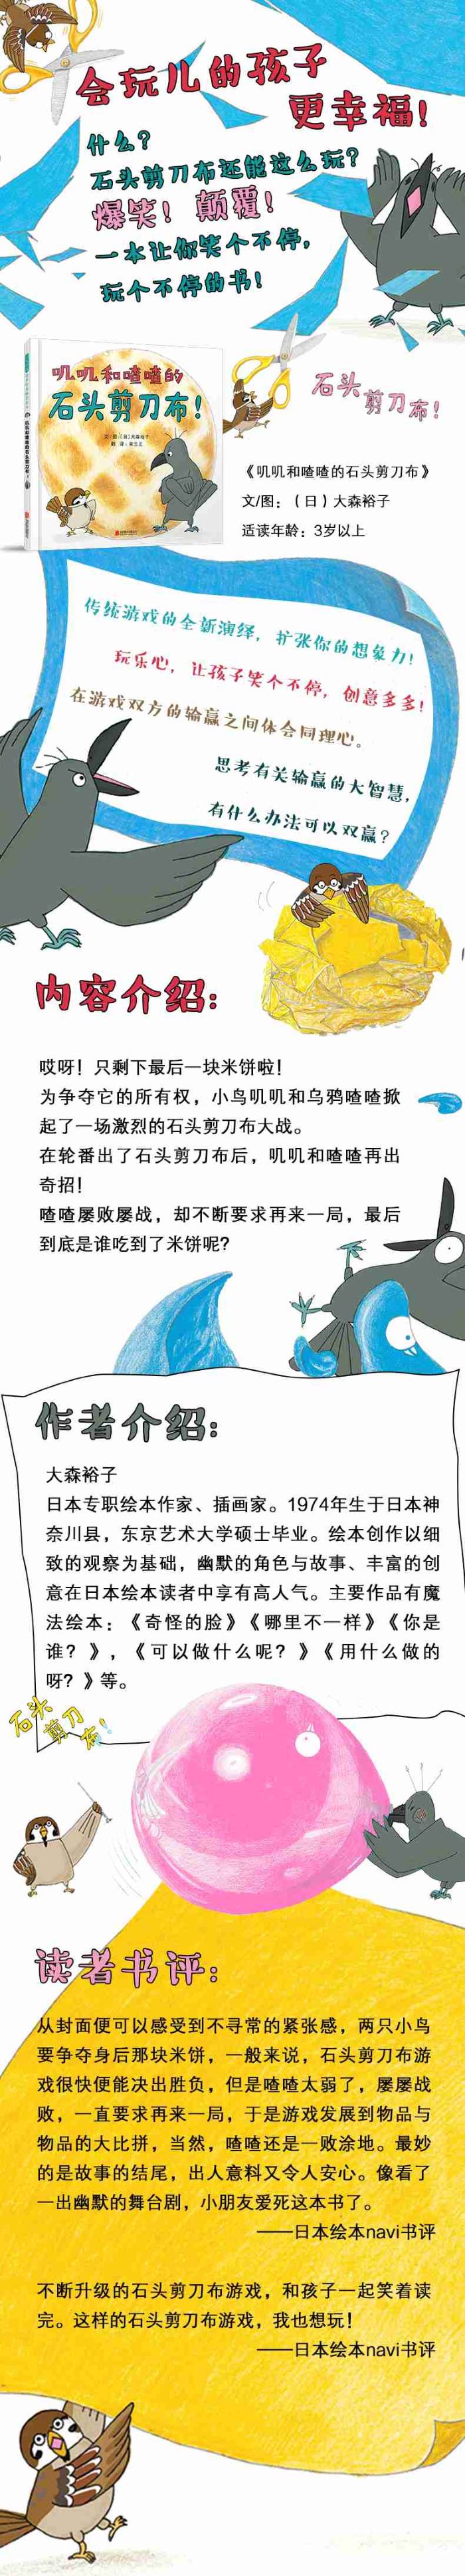 会玩儿的孩子
更幸福！
什么？
石头剪刀布还能这么玩？
爆笑！颠覆！
一本让你笑个不停，
玩个不停的书！
叽叽和喳喳的
石头剪刀布！
石头剪刀布！
《叽叽和喳喳的石头剪刀布》
文/图：（日）大森裕子
适读年龄：3岁以上
传统游戏的全新演绎，扩张你的想象力！
玩乐心，让孩子笑个不停，创意多多！
在游戏双方的输赢之间体会同理心。
思考有关输赢的大智慧，
有什么办法可以双赢？
内容介绍：
哎呀！只剩下最后一块米饼啦！
为争夺它的所有权，小鸟叽叽和乌鸦喳喳掀
起了一场激烈的石头剪刀布大战。
在轮番出了石头剪刀布后，叽叽和喳喳再出
奇招！
喳喳屡败屡战，却不断要求再来一局，最后
到底是谁吃到了米饼呢？
作者介绍：
大森裕子
日本专职绘本作家、插画家。1974年生于日本神
奈川县，东京艺术大学硕士毕业。绘本创作以细
致的观察为基础，幽默的角色与故事、丰富的创
意在日本绘本读者中享有高人气。主要作品有魔
法绘本：《奇怪的脸》《哪里不一样》《你是
谁？》，《可以做什么呢？》《用什么做的
呀？》等。
石头
剪刀
布！
读者书评：
从封面便可以感受到不寻常的紧张感，两只小鸟
要争夺身后那块米饼，一般来说，石头剪刀布游
戏很快便能决出胜负，但是喳喳太弱了，屡屡战
败，一直要求再来一局，于是游戏发展到物品与
物品的大比拼，当然，喳喳还是一败涂地。最妙
的是故事的结尾，出人意料又令人安心。像看了
一出幽默的舞台剧，小朋友爱死这本书了。
——日本绘本navi书评
不断升级的石头剪刀布游戏，和孩子一起笑着读
完。这样的石头剪刀布游戏，我也想玩！
——日本绘本navi书评